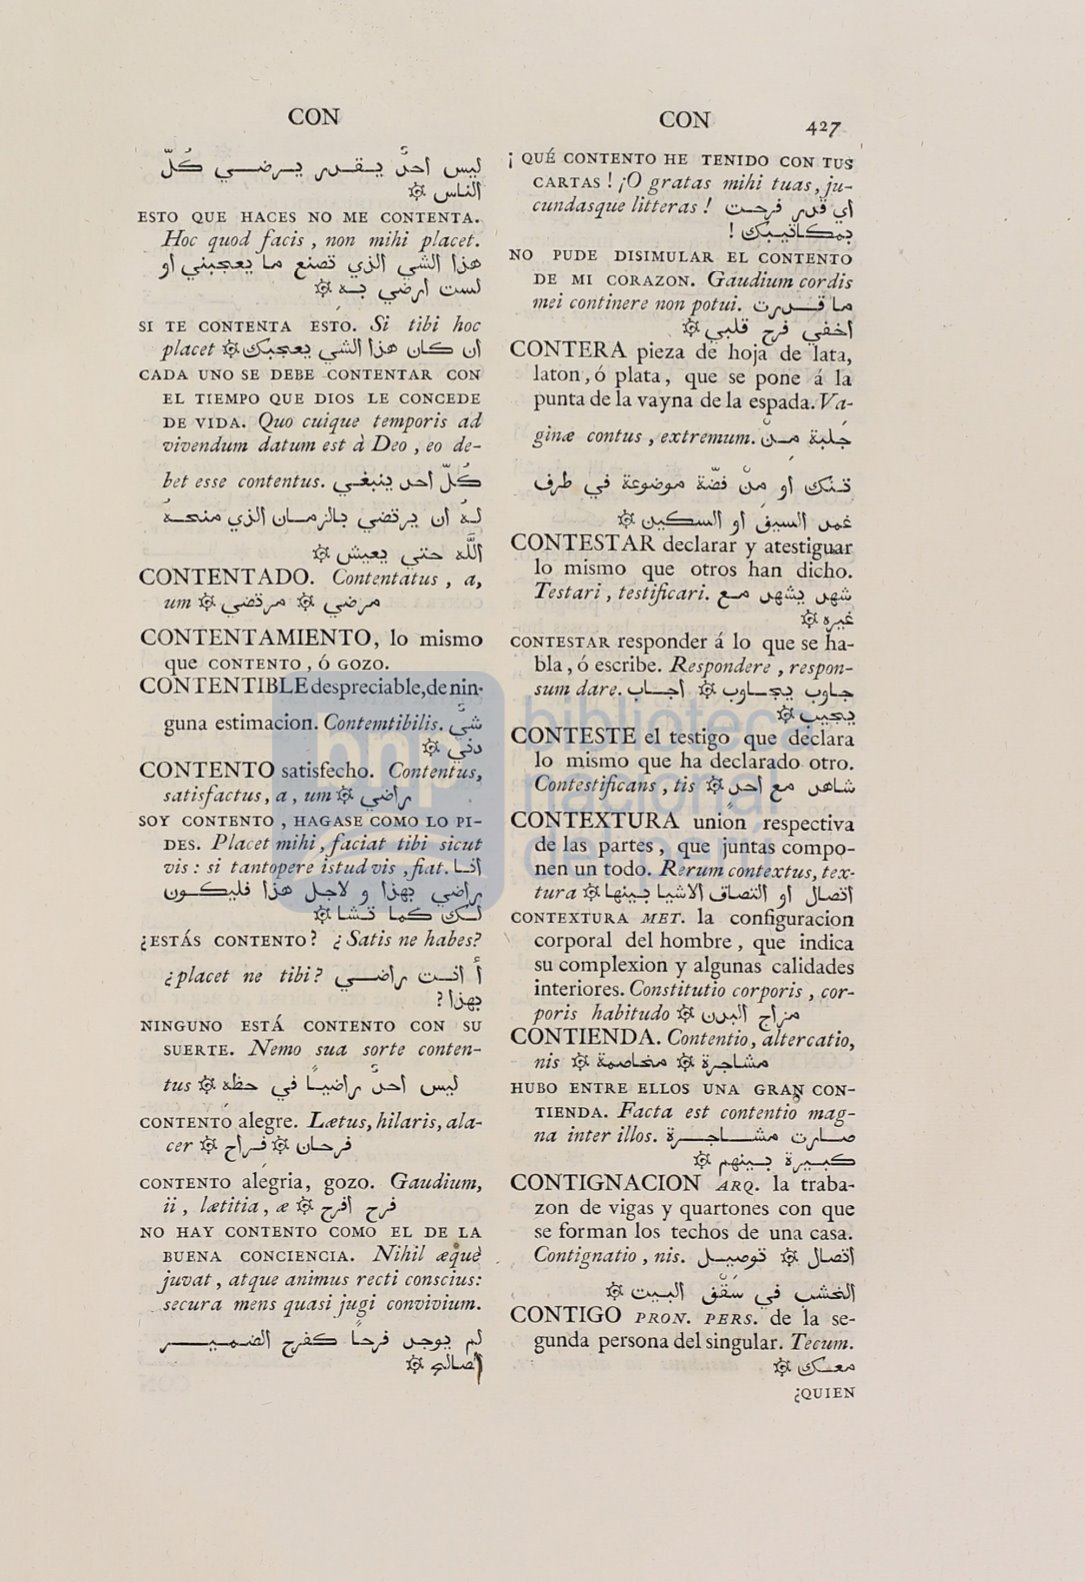 CON
ليس احدٌ يقدر يرضي كُلّ
الناس ۞
ESTO QUE HACES NO ME CONTENTA.
Hoc quod facis, non mihi placet.
هذا الشي الذي تصنع ما يعجبني او
لست ارضي به ۞
SI TE CONTENTA ESTO. Si tibi hoc
placet ۞ ان كان هذا الشي يعجبك
CADA UNO SE DEBE CONTENTAR CON
EL TIEMPO QUE DIOS LE CONCEDE
DE VIDA. Quo cuique temporis ad
vivendum datum est à Deo, eo de-
bet esse contentus. كُلّ احد ينبغي
لهُ ان يرتضي بالزمان الذي منحهُ
اللّٰه حتي يعيش ۞
CONTENTADO. Contentatus, a,
um ۞ مرضي ۞ مرتضي
CONTENTAMIENTO, lo mismo
que CONTENTO, Ó GOZO.
CONTENTIBLE despreciable, de nin-
guna estimacion. Contemtibilis. شيٌ
دني ۞
CONTENTO satisfecho. Contentus,
satisfactus, a, um ۞ راضي
SOY CONTENTO, HAGASE COMO LO PI-
DES. Placet mihi, faciat tibi sicut
vis: si tantopere istud vis, fiat. انا
راضي بهذا و لاجل هذا فليكون
لك كما تشا ۞
¿ESTÁS CONTENTO? ¿Satis ne habes?
¿placet ne tibi? أ انت راضي
بهذا ?
NINGUNO ESTÁ CONTENTO CON SU
SUERTE. Nemo sua sorte conten-
tus ۞ ليس احدٌ راضياً في حظه
CONTENTO alegre. Lætus, hilaris, ala-
cer ۞ فراح ۞ فرحان
CONTENTO alegria, gozo. Gaudium,
ii, lætitia, æ ۞ فرح افرح
NO HAY CONTENTO COMO EL DE LA
BUENA CONCIENCIA. Nihil æquè
juvat, atque animus recti conscius:
secura mens quasi jugi convivium.
لم يوجد فرحاً كفرح الضمير
الصالح ۞
CON
427
¡QUÉ CONTENTO HE TENIDO CON TUS
CARTAS! ¡O gratas mihi tuas, ju-
cundasque litteras! اي قدر فرحت
بمكاتيبك !
NO PUDE DISIMULAR EL CONTENTO
DE MI CORAZON. Gaudium cordis
mei continere non potui. ما قدرت
اخفي فرح قلبي ۞
CONTERA pieza de hoja de lata,
laton, ó plata, que se pone á la
punta de la vayna de la espada. Va-
ginæ contus, extremum. جلبة من
تنك او من فضّة موضوعة في طرف
غمد السيف او السكين ۞
CONTESTAR declarar y atestiguar
lo mismo que otros han dicho.
Testari, testificari. شهد يشهد مع
غيره ۞
CONTESTAR responder á lo que se ha-
bla, ó escribe. Respondere, respon-
sum dare. جاوب يجاوب ۞ اجاب
يجيب ۞
CONTESTE el testigo que declara
lo mismo que ha declarado otro.
Contestificans, tis ۞ شاهد مع احد
CONTEXTURA unión respectiva
de las partes, que juntas compo-
nen un todo. Rerum contextus, tex-
tura ۞ اتصال او التصاق الاشيا بينها
CONTEXTURA MET. la configuracion
corporal del hombre, que indica
su complexion y algunas calidades
interiores. Constitutio corporis, cor-
poris habitudo ۞ مزاج البدن
CONTIENDA. Contentio, altercatio,
nis ۞ مشاجرة ۞ مخاصمة
HUBO ENTRE ELLOS UNA GRAN CON-
TIENDA. Facta est contentio mag-
na inter illos. صارت مشاجرة
كبيرة بينهم ۞
CONTIGNACION ARQ. la traba-
zon de vigas y quartones con que
se forman los techos de una casa.
Contignatio, nis. اتصال ۞ توصيل
الخشب في سقْف البيت ۞
CONTIGO PRON. PERS. de la se-
gunda persona del singular. Tecum.
معك ۞
¿QUIEN
bnp biblioteca
nacional
del perú